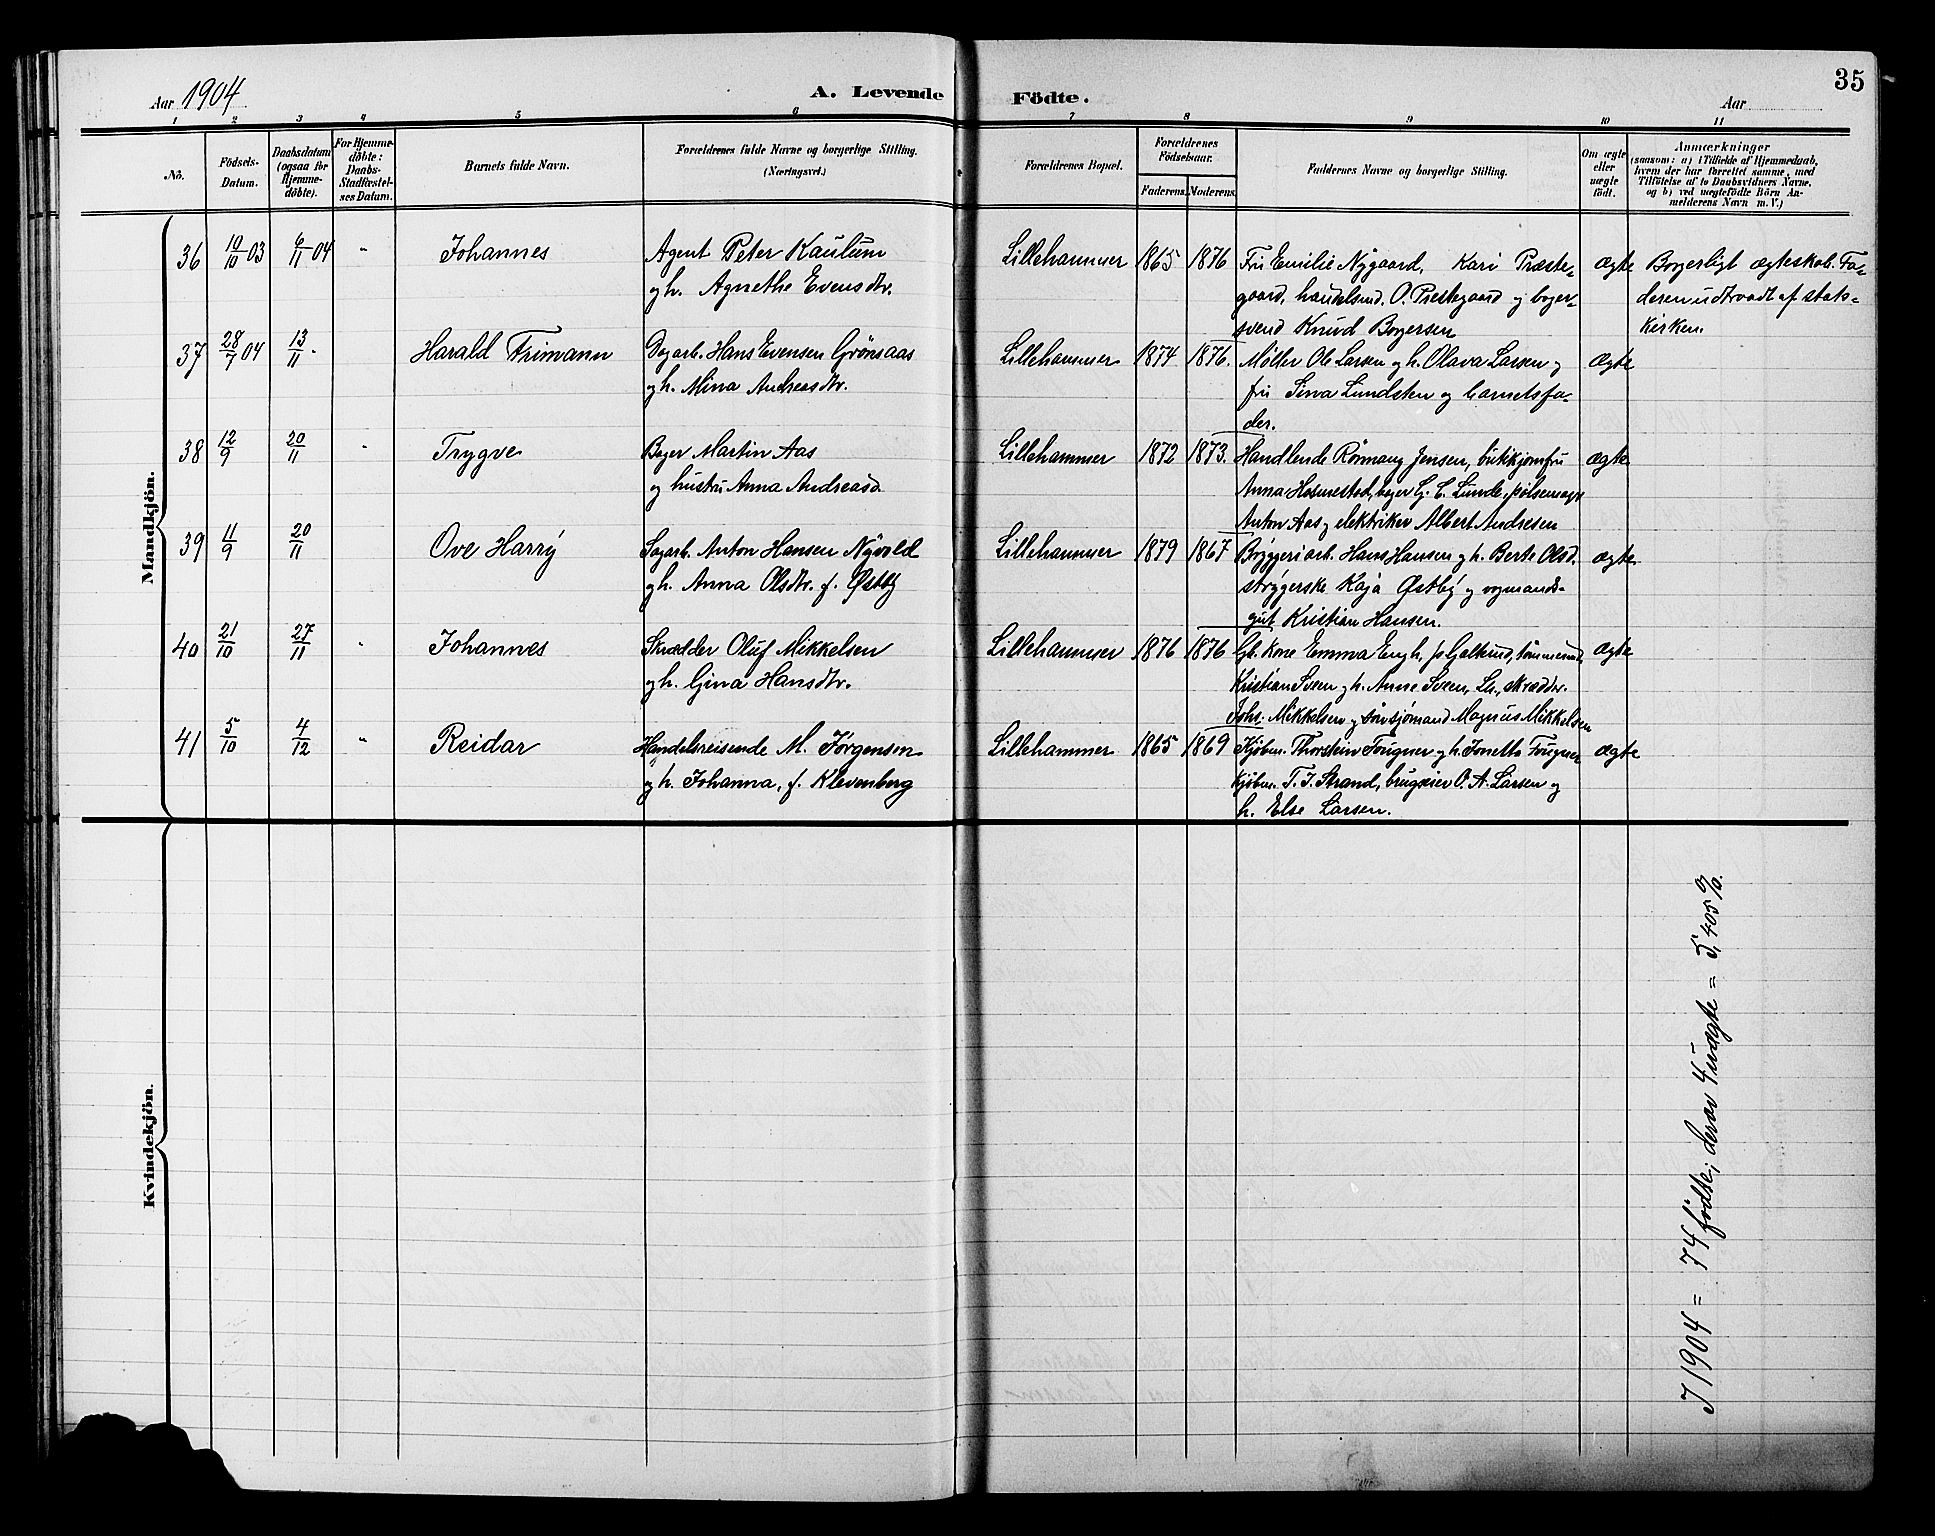 35
Aar 1904
A. Levende Födte.
Aar
1 2 3 4 5 6 7 8 9 10 11
No.
Födsels-Datum.
Daabsdatum (ogsaa for Hjemme-döbte).
For Hjemme-döbte: Daabs-Stadfæstel-ses Datum.
Barnets fulde Navn.
Forældrenes fulde Navne og borgerlige Stilling.
(Næringsvei.)
Forældrenes Bopæl.
Forældrenes Födselsaar.
Faderens. Moderens.
Faddernes Navne og borgerlige Stilling.
Om ægte eller uægte födt.
Anmærkninger
(saasom: a) i Tilfælde af Hjemmedaab,
hvem der har forrettet samme, med
Tilföielse af to Daabsvidners Navne,
og b) ved uægtefödte Börn An-
melderens Navn m. V.)
Mandkjön.
36 19/10 03 6/11 04 " Johannes Agent Peter Kaulum Lillehammer 1865 1876 Fru Emilie Nygaard, Kari Præste- ægte Borgerligt ægteskab. Fa-
gh. Agnethe Evensdtr. gaard, handelsmd. O. Prestegaard og bager- deren udtraadt af stats-
svend Knud Borgersen kirken.
37 28/7 04 13/11 . Harald Frimann Dagarb. Hans Evensen Grönsaas Lillehammer 1874 1876. Møller Ole Larsen og h. Olava Larsen og ægte
gh. Mina Andreasdtr. fru Sina Lundsten og barnetsfa-
der.
38 12/9 20/11 " Trygve Bager Martin Aas Lillehammer 1872 1873. Handlende Jensen, butikjomfru ægte
og hustru Anna Andreasd. Anna Hosmestad, bager G. C. Lunde, pölsemager
Anton Aas og elektriker Albert Andresen
39 11/9 20/11 Ove Harry Sagarb. Anton Hansen Nyvold Lillehammer 1879 1867 Bryggeriarb. Hans Hansen og h. Berte Olsd. ægte
gh. Anna Olsdtr. f. Østby strygerske Kaja Østby og vogmands-
gut Kristian Hansen.
40 21/10 27/11 " Johannes Skrædder Oluf Mikkelsen Lillehammer 1876 1876 Gb. Kone Emma Engh, ægte
gh. Gina Hansdtr. Kristian Sveen og h. Anne Sveen, Lh., skrædder.
Johs. Mikkelsen og sjømand Magnus Mikkelsen
41 5/10 4/12 " Reidar Handelsreisende M. Jörgensen Lillehammer 1865 1869 Kjöbm. Thorstein Fougner og h. Jonette Fougner ægte
og h. Johanna, f. Klevenberg Kjöbm. T. J. Strand, brugseier O. A. Larsen og
h. Else Larsen.
Kvindekjön.
I 1904 = 74 födte; derav 4 uægte = 5,405 %.